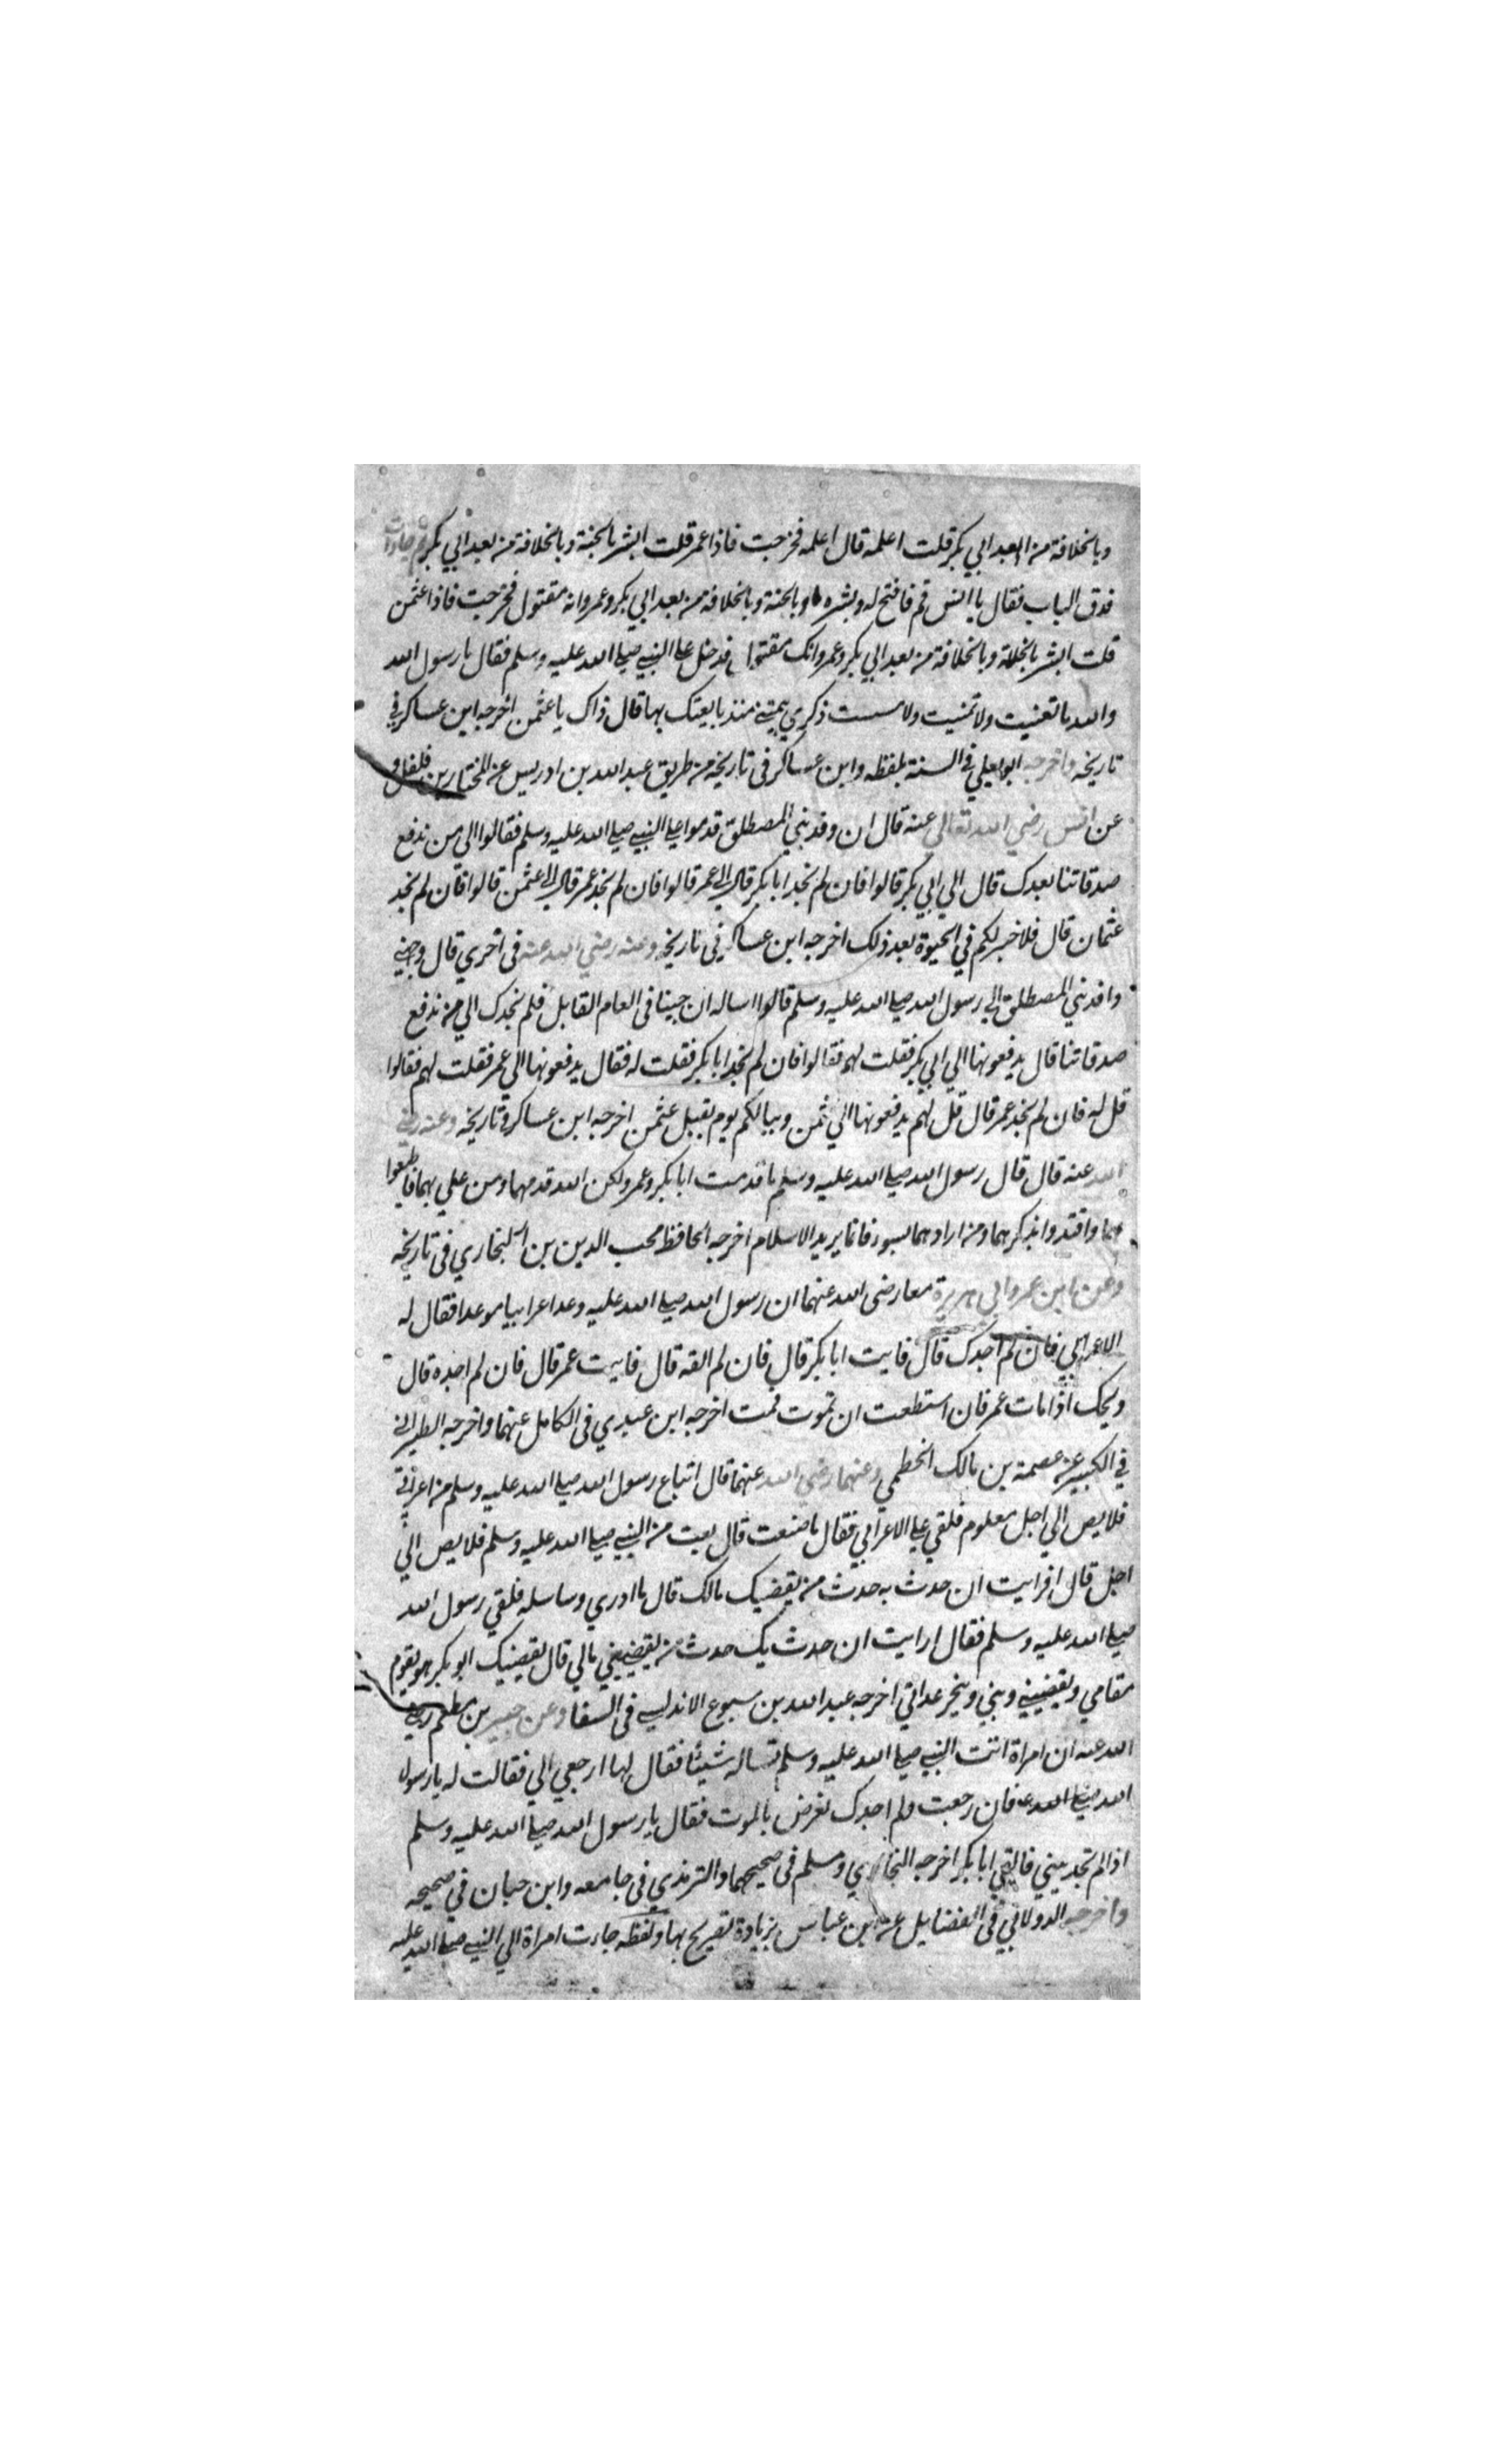 وبالخلافة من البعد ابي بكر قلت اعلمه قال اعلمه فخرجت فاذا عمر قلت ابشر بالجنة وبالخلافة من بعد ابي بكر ثم جاءات
فدق الباب فقال يا انس قم فافتح له وبشره وبالجنة وبالخلافة من بعد ابي بكر وعمر وانه مقتول فخرجت فاذا عثمن
قلت ابشر بالجنة وبالخلافة من بعد ابي بكر وعمر وانك مقتول فدخل على النبي صلى الله عليه وسلم فقال يا رسول الله
والله ما تغنيت ولا تمنيت ولا مسست ذكري بيميني منذ بايعتك بها قال ذاك يا عثمن اخرجه ابن عساكر في
تاريخه واخرجه ابو يعلي في السنة بلفظه وابن عساكر في تاريخه من طريق عبد الله بن ادريس عن المختار بن فلفل و
عن انس رضي الله تعالي عنه قال ان وفد بني المصطلق قدموا على النبي صلى الله عليه وسلم فقالوا الى من ندفع
صدقاتنا بعدك قال الي ابي بكر قالوا فان لم نجد ابا بكر قال الي عمر قالوا فان لم نجد عمر قال الي عثمن قالوا فان لم نجد
عثمان قال فلا خير لكم في الحيوة بعد ذلك اخرجه ابن عساكر في تاريخه وعنه رضي الله عنه في اخري قال وجهني
وافد بني المصطلق الي رسول الله صلى الله عليه وسلم قالوا اساله ان جينا في العام القابل فلم نجدك الي من ندفع
صدقاتنا قال يدفعونها الي ابي بكر فقلت لهم فقالوا فان لم نجد ابا بكر فقلت له فقال يدفعونها الي عمر فقلت لهم فقالوا
قل له فان لم نجد عمر قال قل لهم يدفعونها الي ثمن وبيالكم يوم يقبل عثمن اخرجه ابن عساكر في تاريخه وعنه رضي
الله عنه قال قال رسول الله صلى الله عليه وسلم ما قدمت ابا بكر وعمر ولكن الله قدمهما ومن علي بهما فاطيعوا
هما واقتدوا بذكرهما ومن ارادهما بسوء فانما يريد الاسلام اخرجه الحافظ محب الدين بن النجاري في تاريخه
وعن ابن عمر وابي هريرة معا رضى الله عنهما ان رسول الله صلى الله عليه وعد اعرابيا موعدا فقال له
الاعرابي فان لم اجدك قال فايت ابا بكر قال فان لم القه قال فايت عمر قال فان لم اجده قال
ويحك اذا مات عمر فان استطعت ان تموت فمت اخرجه ابن عبدي في الكامل عنهما واخرجه الطبراني
في الكبير عن عصمة بن مالك الخطمي وعنهما رضي الله عنهما قال ابتاع رسول الله صلى الله عليه وسلم من اعرابي
قلايص الي اجل معلوم فلقي علي الاعرابي فقال ما صنعت قال بعت من النبي صلى الله عليه وسلم قلايص الي
اجل قال افرايت ان حدث به حدث من يقضيك مالك قال ما ادري وساسله فلقي رسول الله
صلى الله عليه وسلم فقال ارايت ان حدث بك حدث من يقضيني مالي قال يقضيك ابو بكر هو يقوم
مقامي ويقضيني ديني وينجز عداتي اخرجه عبد الله بن سبوع الاندلسي في الشفا وعن جبير بن مطعم رضي
الله عنه ان امراة اتت النبي صلى الله عليه وسلم تساله شيئا فقال لها ارجعي الي فقالت له يا رسول
الله صلى الله عه فان رجعت ولم اجدك تعرض بالموت فقال يا رسول الله صلى الله عليه وسلم
اذا لم تجديني فالقي ابا بكر اخرجه البخاري ومسلم في صحيحهما والترمذي في جامعه وابن حبان في صحيحه
واخرجه الدولابي في الفضايل عن ابن عباس بزيادة تصريح بها ولفظه جاءت امراة الي النبي صلى الله عليه